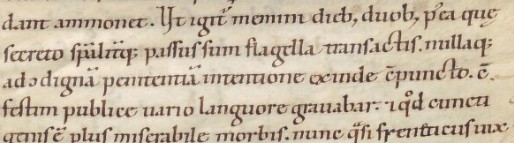 dant ammonet. Ut igit᷑ memini dieb; duob; p̄ea que
secreto sp̄alit̉q; passus sum flagella transactis. nullaq;
ad dignā penitentiā intentione exinde cōpuncto. c̄
festim publice uario languore grauabar. i qd̓ cuncti
genisē plus miserabile morbis. nunc q̓si freneticus uix